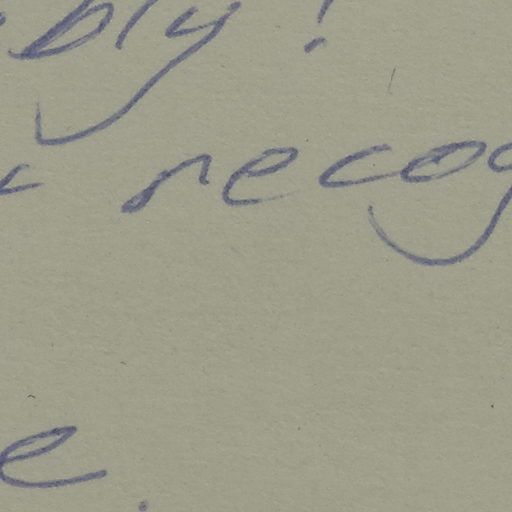 bly!
recog
e.